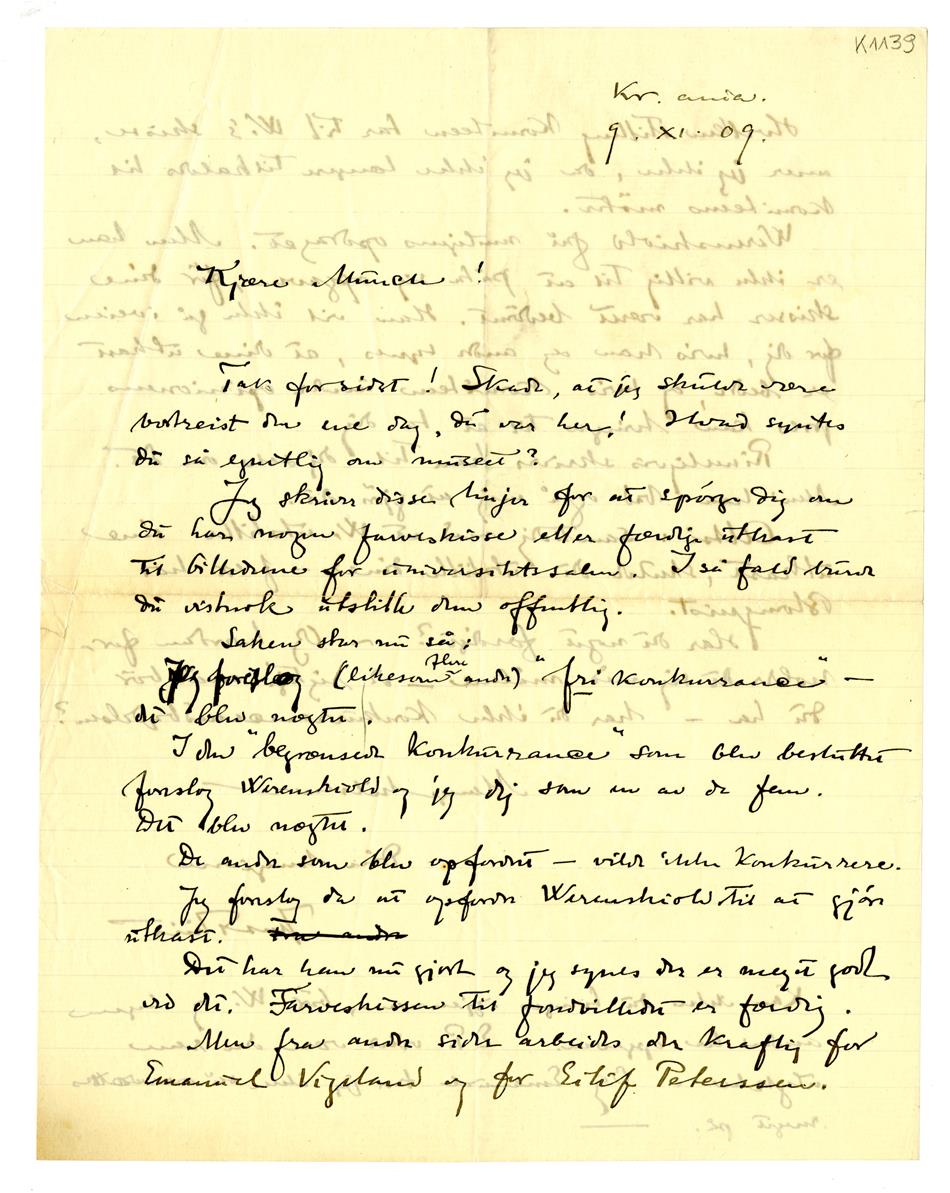 K1139
Kr. ania.
9. XI. 09.
Kjære Munch!
Tak for sidst! Skade, at jeg skulde være
bortreist den ene dag, du var her! Hvad syntes
du så egentlig om museet?
Jeg skriver disse linjer for at spörge dig om
du har nogen farveskisse eller færdige utkast
til billederne for universitetssalen. I så fald burde
du vistnok utstille dem offentlig.
Saken står nu så:
Jeg foreslog (likesom flere andre) "fri konkurrance" —
det blev nægtet.
I den "begrænsede konkurrance" som blev besluttet
foreslog Werenskiold og jeg dig som en av de fem.
Det blev nægtet.
De andre som blev opfordret — vilde ikke konkurrere.
Jeg foreslog da at opfordre Werenskiold til at gjöre
utkast. Fra andre
Det har han nu gjort og jeg synes der er meget godt
ved det. Farveskissen til fondbilledet er færdig.
Men fra andre sider arbeides der kraftig for
Emanuel Vigeland og for Eilif Peterssen.